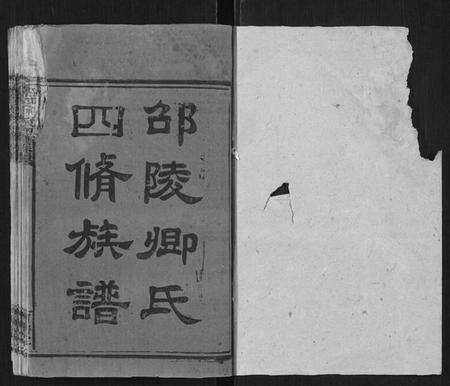 邵陵卿氏
四脩族譜